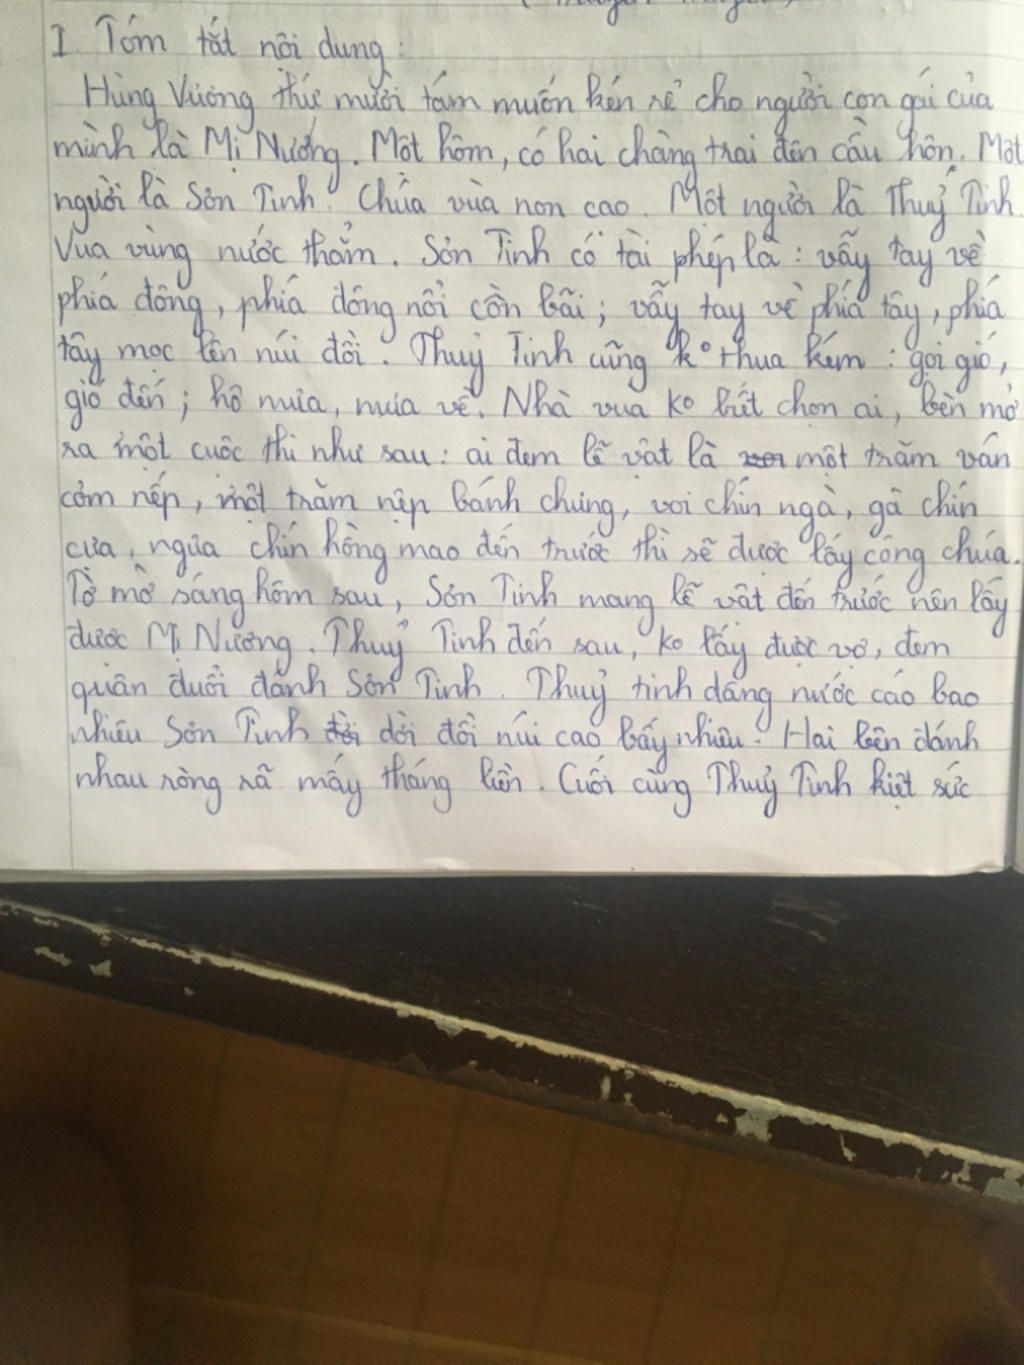 I. Tóm tắt nội dung:
Hùng Vương thứ mười tám muốn kén rể cho người con gái của
mình là Mị Nương. Một hôm, có hai chàng trai đến cầu hôn. Một
người là Sơn Tinh. Chúa vùa non cao. Một người là Thuỷ Tinh.
Vua vùng nước thẳm. Sơn Tinh có tài phép là: vẫy tay về
phía đông, phía đông nổi cồn bãi; vẫy tay về phía tây, phía
tây mọc lên núi đồi. Thuỷ Tinh cũng k° thua kém: gọi gió,
gió đến; hô mưa, mưa về. Nhà vua ko biết chọn ai, bèn mở
ra một cuộc thi như sau: ai đem lễ vật là một trăm ván
cơm nếp, một trăm nệp bánh chưng, voi chín ngà, gà chín
cựa, ngựa chín hồng mao đến trước thì sẽ được lấy công chúa.
Tờ mờ sáng hôm sau, Sơn Tinh mang lễ vật đến trước nên lấy
được Mị Nương. Thuỷ Tinh đến sau, ko lấy được vợ, đem
quân đuổi đánh Sơn Tinh. Thuỷ tinh dâng nước cao bao
nhiêu Sơn Tinh dời đồi núi cao bấy nhiêu. Hai bên đánh
nhau ròng rã mấy tháng liền. Cuối cùng Thuỷ Tinh kiệt sức